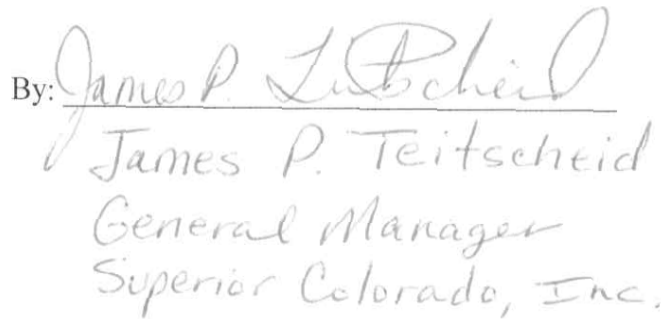 By: James P. Teitscheid
James P. Teitscheid
General Manager
Superior Colorado, Inc.